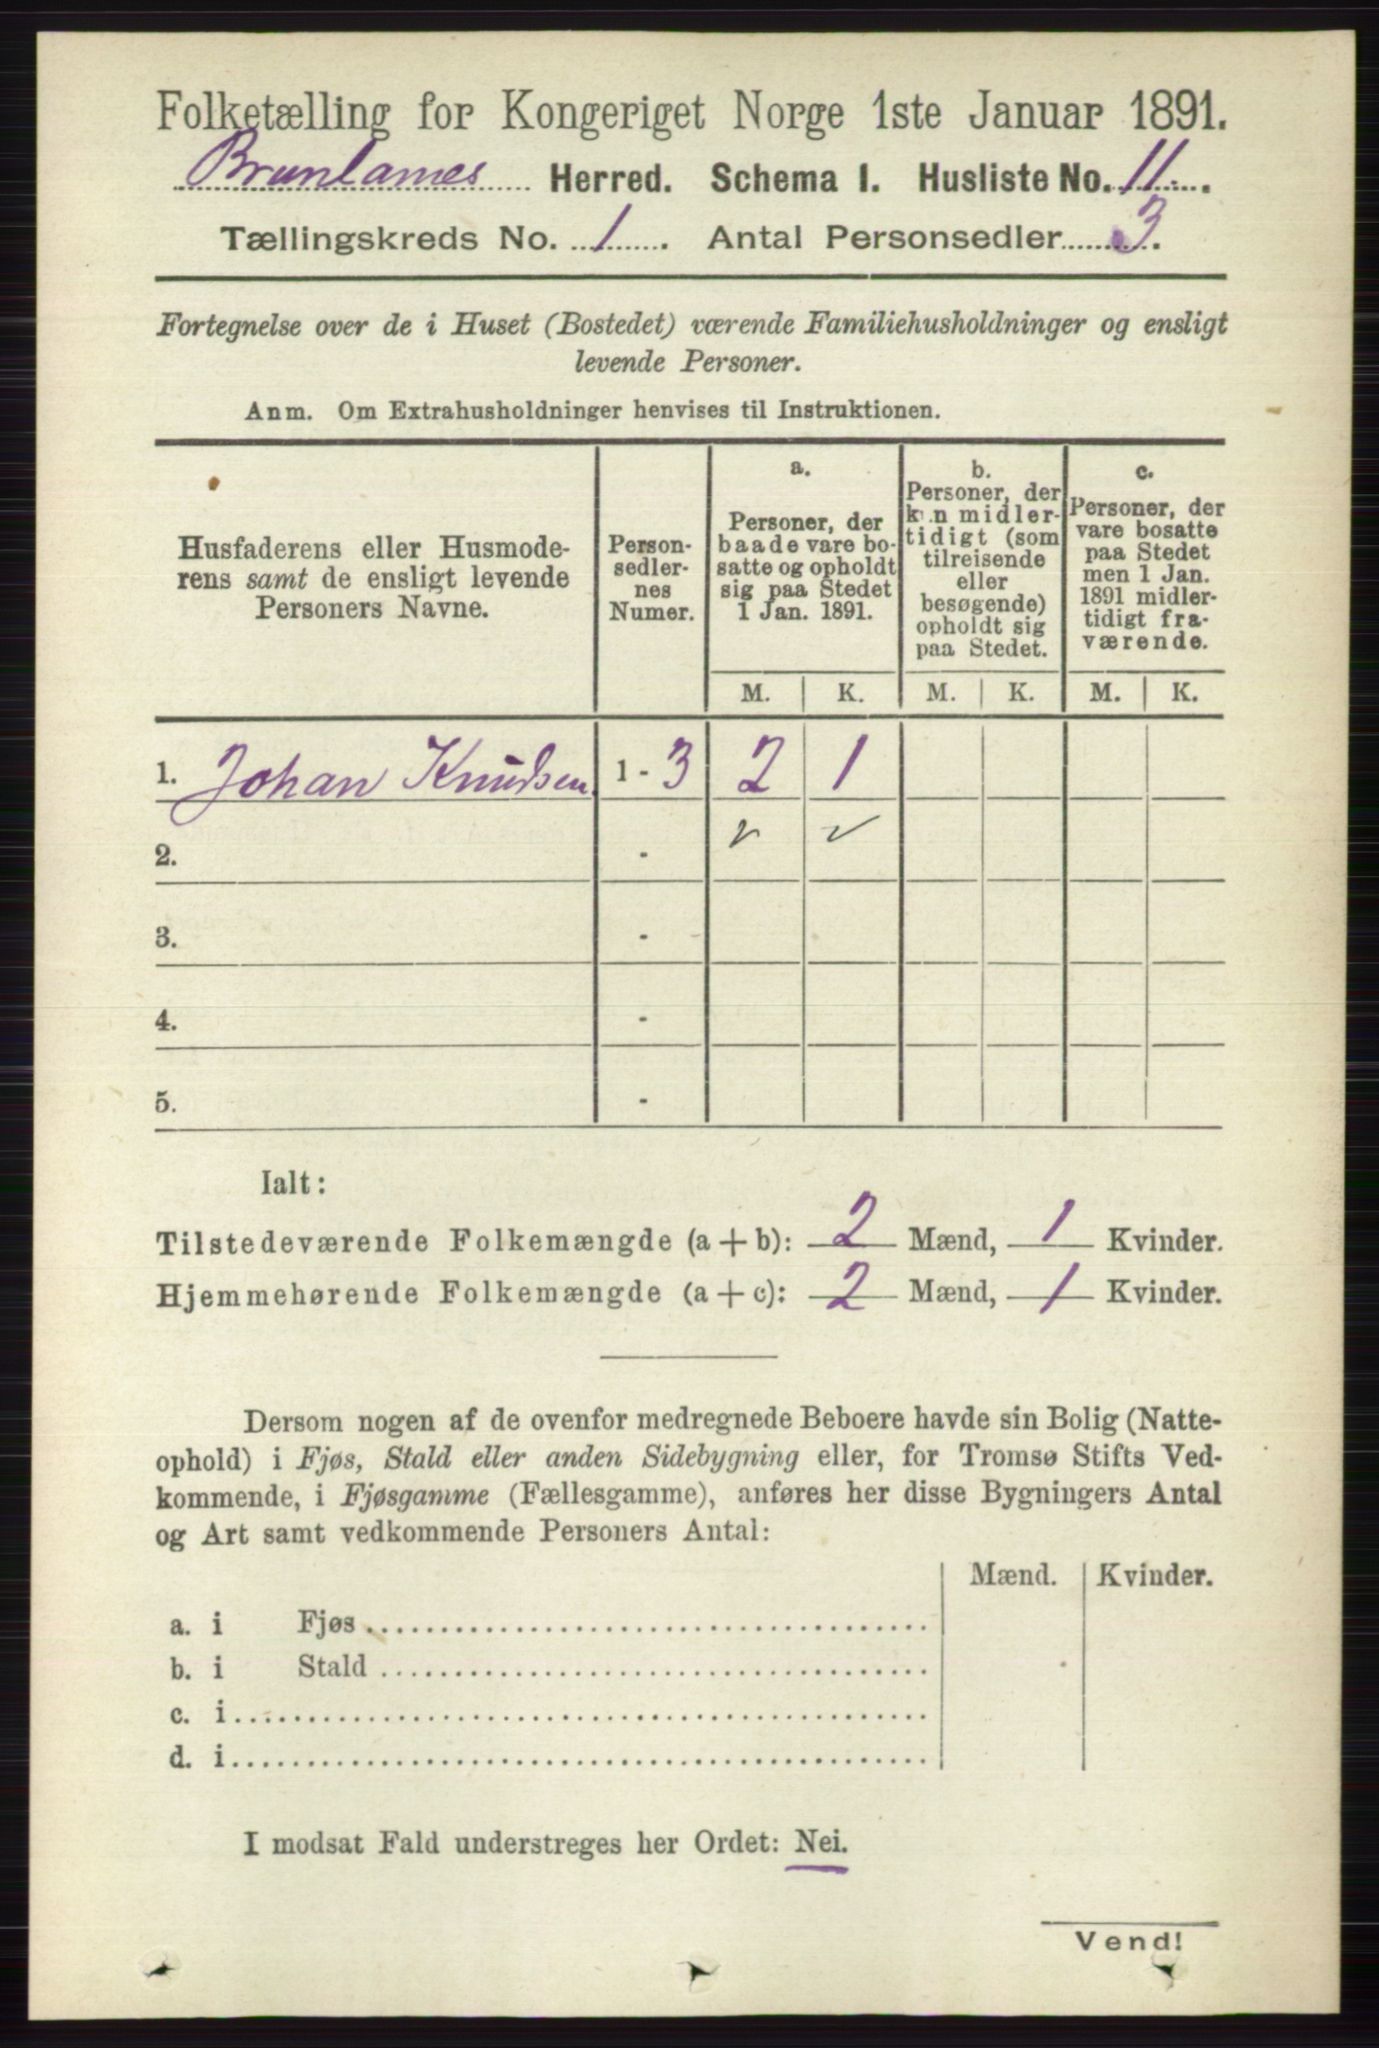 Folketælling for Kongeriget Norge 1ste Januar 1891.
Brunlanes Herred. Schema I. Husliste No. 11.
Tællingskreds No. 1. Antal Personsedler 3.
Fortegnelse over de i Huset (Bostedet) værende Familiehusholdninger og ensligt
levende Personer.
Anm. Om Extrahusholdninger henvises til Instruktionen.
Husfaderens eller Husmode-
rens samt de ensligt levende
Personers Navne.
Person-
sedler-
nes
Numer.
a.
Personer, der
baade vare bo-
satte og opholdt
sig paa Stedet
1 Jan. 1891.
b.
Personer, der
kun midler-
tidigt (som
tilreisende
eller
besøgende)
opholdt sig
paa Stedet.
c.
Personer, der
vare bosatte
paa Stedet
men 1 Jan.
1891 midler-
tidigt fra-
værende.
M. K. M. K. M. K.
1. Johan Knudsen 1 - 3 2 1
2. - v v
3. -
4. -
5. -
Ialt:
Tilstedeværende Folkemængde (a + b): 2 Mænd, 1 Kvinder.
Hjemmehørende Folkemængde (a + c): 2 Mænd, 1 Kvinder.
Dersom nogen af de ovenfor medregnede Beboere havde sin Bolig (Natte-
ophold) i Fjøs, Stald eller anden Sidebygning eller, for Tromsø Stifts Ved-
kommende, i Fjøsgamme (Fællesgamme), anføres her disse Bygningers Antal
og Art samt vedkommende Personers Antal:
Mænd. Kvinder.
a. i Fjøs
b. i Stald
c. i
d. i
I modsat Fald understreges her Ordet: Nei.
Vend!